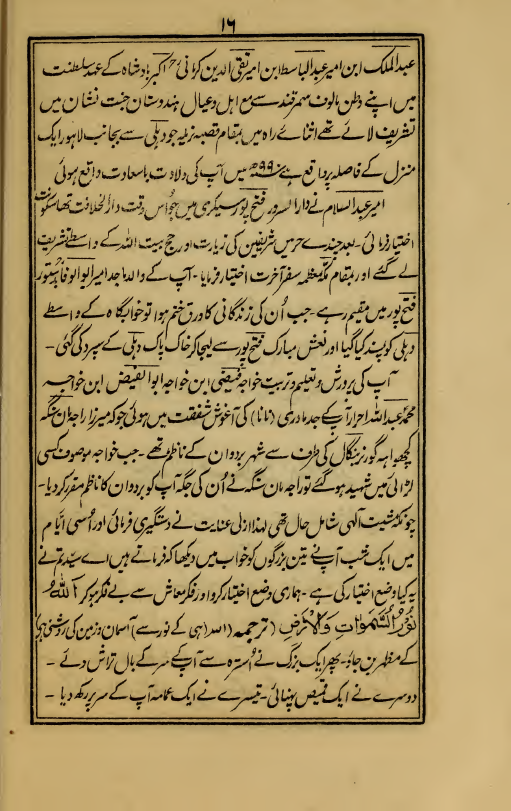 ١٦
عبدالملک ابن امیر عبدالباسط ابن امیر تقی الدین کرمانی اکبر بادشاہ کے عہد سلطنت
میں اپنے وطن مالوف سمرقند سے مع اہل وعیال ہندوستان جنت نشان میں
تشریف لائے تھے اثنائے راہ میں بمقام قصبہ نریلہ جو دہلی سے بجانب لاہور ایک
منزل کے فاصلہ پر واقع ہے ۹۹۰ھ میں آپ کی ولادت باسعادت واقع ہوئی
امیر عبدالسلام نے دارالسرور فتح پور سیکری میں جو اُس وقت دارالخلافت تھا سکونت
اختیار فرمائی۔ بعد چندے حرمین شریفین کی زیارت اور حج بیت اللہ کے واسطے تشریف
لے گئے اور بمقام مکہ معظمہ سفر آخرت اختیار فرمایا۔ آپ کے والد ماجد امیر ابوالوفا بدستور
فتح پور میں مقیم رہے۔ جب اُن کی زندگانی کا ورق ختم ہوا تو خوابگاہ کے واسطے
دہلی کو پسند کیا گیا اور نعش مبارک فتح پور سے لیجا کر خاک پاک دہلی کے سپرد کی گئی۔
آپ کی پرورش و تعلیم و تربیت خواجہ فیضی ابن خواجہ ابوالفیض ابن خواجہ
محمد عبداللہ احرار آپ کے جد مادری (نانا) کی آغوش شفقت میں ہوئی جو کہ میرزا راجہ مان سنگہ
کچھواہہ گورنر بنگال کی طرف سے شہر بردوان کے ناظم تھے۔ جب خواجہ موصوف کسی
لڑائی میں شہید ہوگئے تو راجہ مان سنگہ نے اُن کی جگہ آپ کو بردوان کا ناظم مقرر کردیا۔
چونکہ مشیت الٰہی شامل حال تھی لہٰذا ازلی عنایت نے دستگیری فرمائی اور اُسی ایّام
میں ایک شب آپنے تین بزرگوں کو خواب میں دیکھا کہ فرماتے ہیں اے سید تم نے
یہ کیا وضع اختیار کی ہے۔ ہماری وضع اختیار کرو اور فکر معاش سے بے فکر ہوکر اَللّٰہُ
نُوْرُ السَّمٰوَاتِ وَالْاَرْضِ (ترجمہ) (اللہ (ہی کے نور سے) آسمان و زمین کی روشنی ہے)
کے مظہر بن جاؤ۔ پھر ایک بزرگ نے اُسترہ سے آپکے سر کے بال تراش دئے۔
دوسرے نے ایک قمیص پہنائی۔ تیسرے نے ایک عمامہ آپ کے سر پر رکھ دیا۔